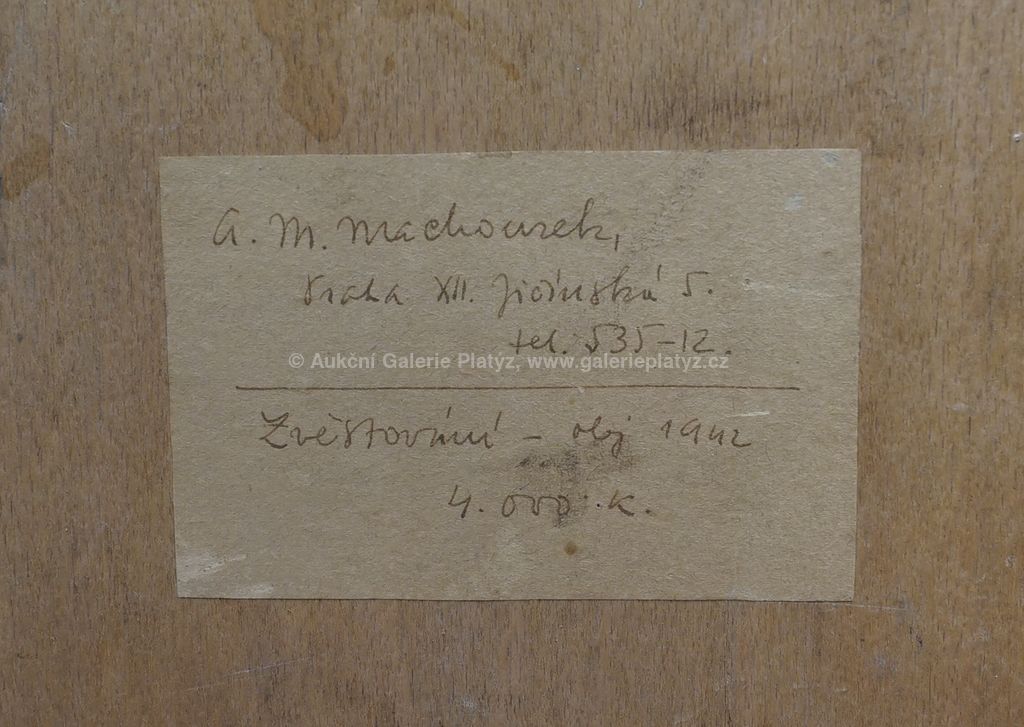 A. M. Machourek,
Praha XII. Jičínská 5.
tel. 535-12.
© Aukční Galerie Platýz, www.galerieplatyz.cz
Zvěstování - olej 1942
4.000.K.